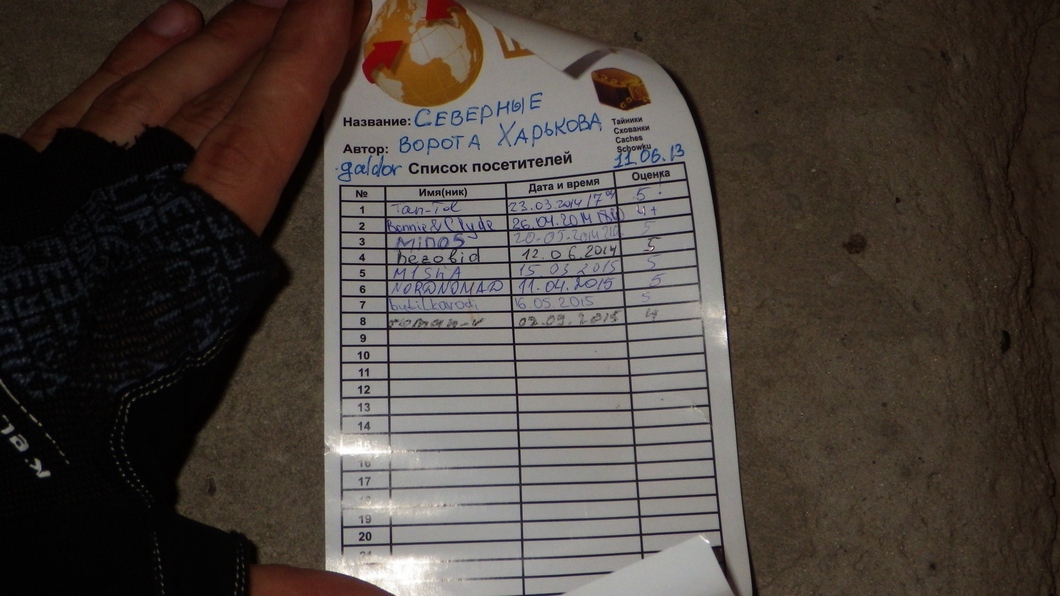 Название: СЕВЕРНЫЕ
Автор: ВОРОТА ХАРЬКОВА
Тайники
Схованки
Caches
Schowku
galdor Список посетителей 11.06.13
№ Имя(ник) Дата и время Оценка
1 Tan-Tol 23.03.2014 17 5
2 Bonnie&Clyde 26.04.2014 4+
3 MINOS 20-05-2014 5
4 hezovid 12.06.2014 5
5 MISHA 15 03 2015 5
6 NORDNOMAD 11.04.2015 5
7 6 05.2015 5
8 roman-v 02.09.2015 4
9
10
11
12
13
14
15
16
17
18
19
20
21
KELL